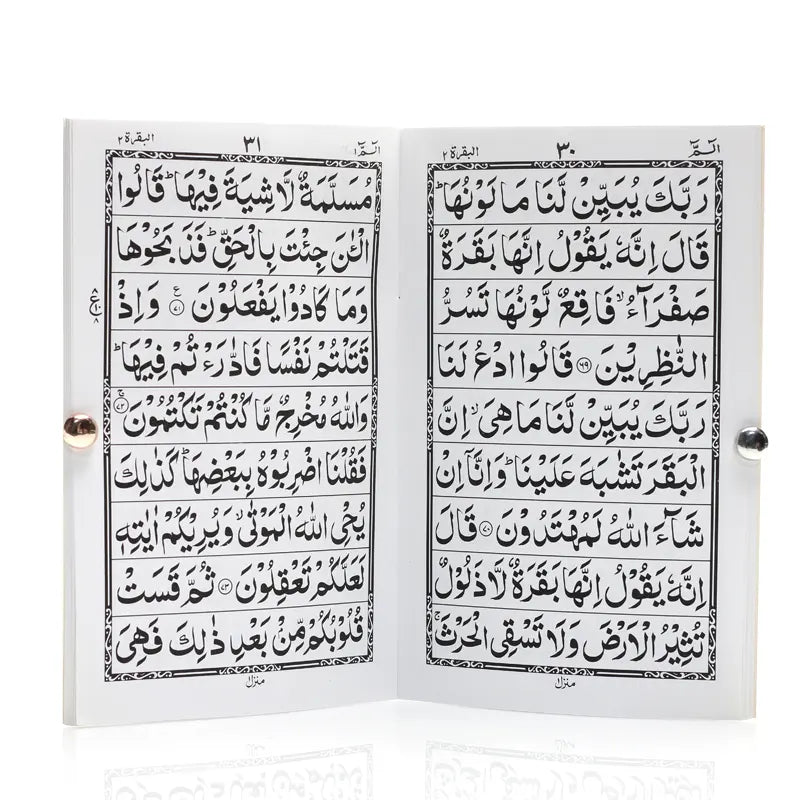 الٓمّٓ ٣٠ البقرة ٢
رَبَّكَ يُبَيِّنْ لَّنَا مَا لَوْنُهَا ؕ
قَالَ اِنَّهٗ يَقُوْلُ اِنَّهَا بَقَرَةٌ
صَفْرَآءُ ۙ فَاقِعٌ لَّوْنُهَا تَسُرُّ
النّٰظِرِيْنَ ﴿۶۹﴾ قَالُوا ادْعُ لَنَا
رَبَّكَ يُبَيِّنْ لَّنَا مَا هِىَ ۙ اِنَّ
الْبَقَرَ تَشٰبَهَ عَلَيْنَا ؕ وَاِنَّاۤ اِنْ
شَآءَ اللّٰهُ لَمُهْتَدُوْنَ ﴿۷۰﴾ قَالَ
اِنَّهٗ يَقُوْلُ اِنَّهَا بَقَرَةٌ لَّا ذَلُوْلٌ
تُثِيْرُ الْاَرْضَ وَلَا تَسْقِى الْحَرْثَ ۚ
منزل
الٓمّٓ ١ ٣١ البقرة ٢
مُسَلَّمَةٌ لَّا شِيَةَ فِيْهَا ؕ قَالُوا
الْـٰٔنَ جِئْتَ بِالْحَقِّ ؕ فَذَبَحُوْهَا
وَمَا كَادُوْا يَفْعَلُوْنَ ﴿۷۱﴾ ع وَاِذْ
قَتَلْتُمْ نَفْسًا فَادّٰرَءْتُمْ فِيْهَا ؕ
وَاللّٰهُ مُخْرِجٌ مَّا كُنْتُمْ تَكْتُمُوْنَ ۚ ﴿۷۲﴾
فَقُلْنَا اضْرِبُوْهُ بِبَعْضِهَا ؕ كَذٰلِكَ
يُحْىِ اللّٰهُ الْمَوْتٰى ۙ وَيُرِيْكُمْ اٰيٰتِهٖ
لَعَلَّكُمْ تَعْقِلُوْنَ ﴿۷۳﴾ ثُمَّ قَسَتْ
قُلُوْبُكُمْ مِّنْۢ بَعْدِ ذٰلِكَ فَهِىَ
منزل